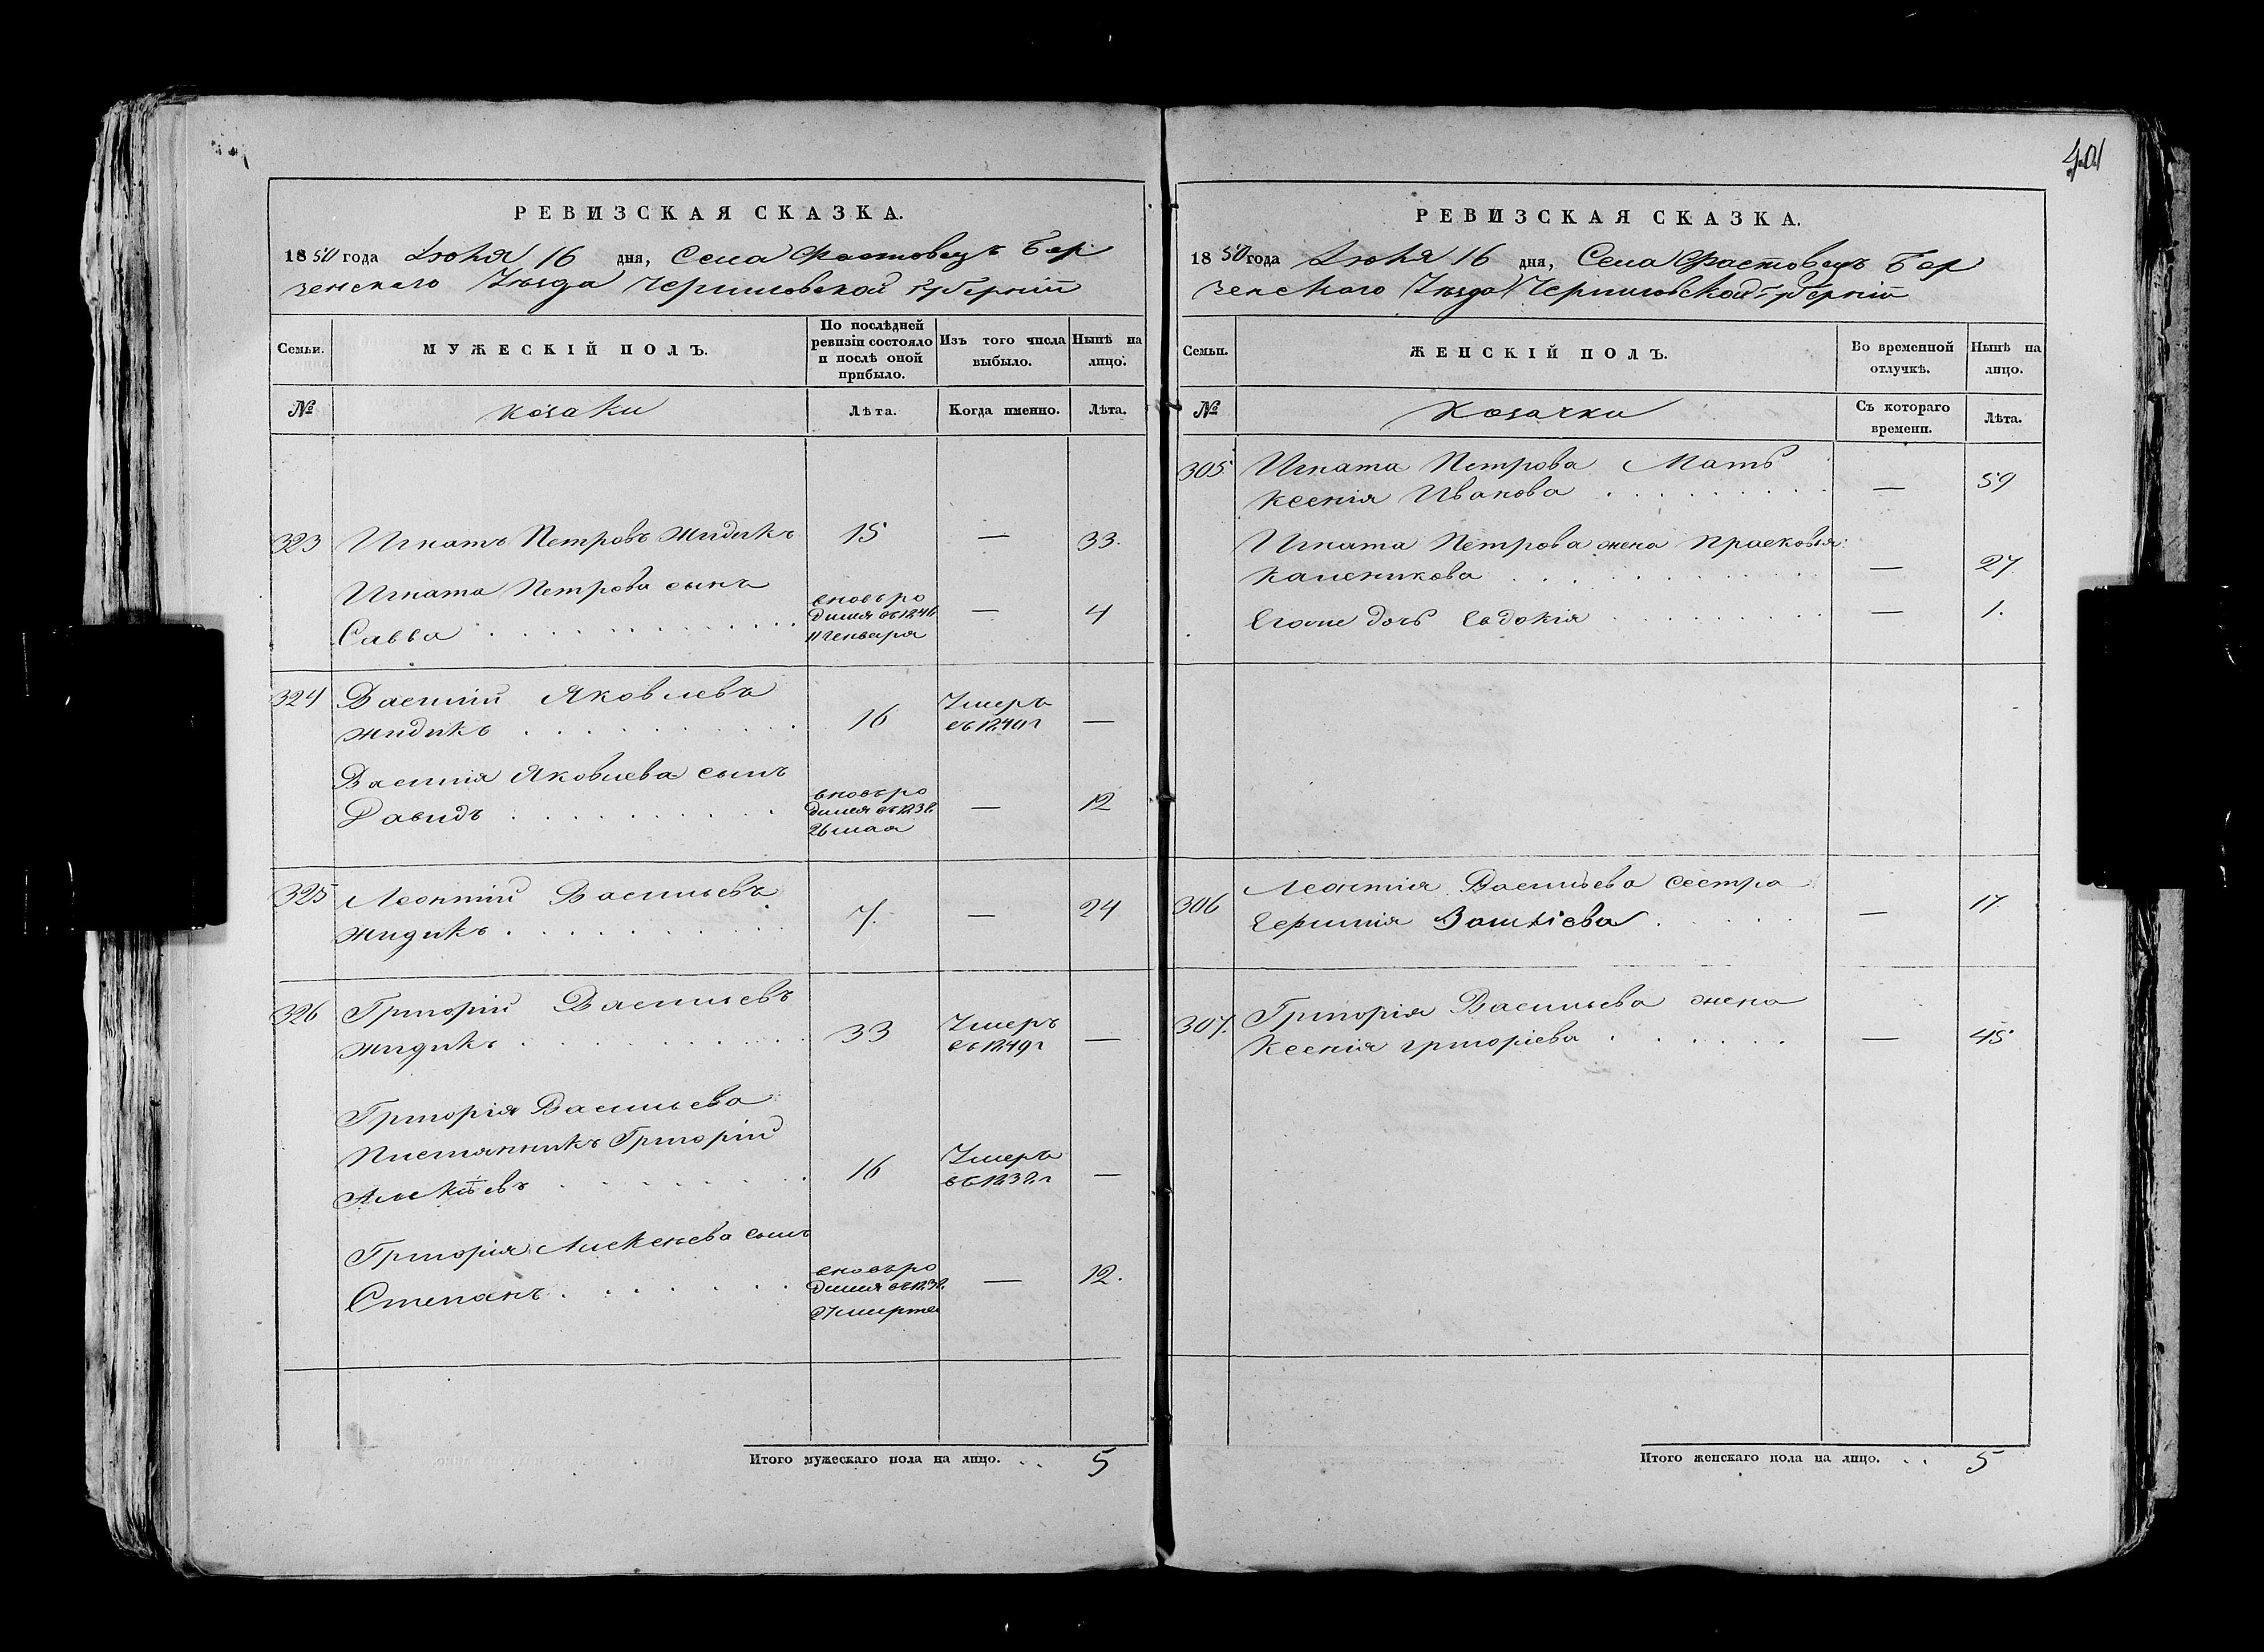 401
РЕВИЗСКАЯ СКАЗКА.
1850 года Іюня 16 дня, Села Фастовецъ Бор
зенскаго Уѣзда Черниговской губерніи
Семьи.
МУЖЕСКІЙ ПОЛЪ.
По послѣдней ревизіи состояло и послѣ оной прибыло.
Изъ того числа выбыло.
Нынѣ на лицо.
№
Козаки
Лѣта.
Когда именно.
Лѣта.
323 Игнатъ Петровъ Жидикъ 15 — 33
Игната Петрова сынъ
Савва вновь ро
дился въ 1846
11 Генваря — 4
324 Василій Яковлевъ
Жидикъ 16 Умеръ
въ 1840 г —
Василія Яковлева сынъ
Давидъ вновь ро
дился въ 1838.
26 мая — 12
325 Леонтій Васильевъ
Жидикъ 7. — 24
326 Григорій Васильевъ
Жидикъ 33 Умеръ
въ 1849 г —
Григорія Васильева
Племянникъ Григорій
Алексѣевъ 16 Умеръ
въ 1838 г —
Григорія Алексѣева сынъ
Степанъ вновь ро
дился въ 1838.
марта — 12.
Итого мужескаго пола на лицо. . . 5
РЕВИЗСКАЯ СКАЗКА.
1850 года Іюня 16 дня, Села Фастовецъ Бор
зенскаго Уѣзда Черниговской губерніи
Семьи.
ЖЕНСКІЙ ПОЛЪ.
Во временной отлучкѣ.
Нынѣ на лицо.
№
Козачки
Съ котораго времени.
Лѣта.
305 Игната Петрова Мать
Ксенія Иванова — 59
Игната Петрова жена Прасковья
— 27
Егоже дочь Евдокія — 1.
306 Леонтія Васильева сестра
Васильева — 17
307. Григорія Васильева жена
Ксенія Григоріева — 45
Итого женскаго пола на лицо. . . 5